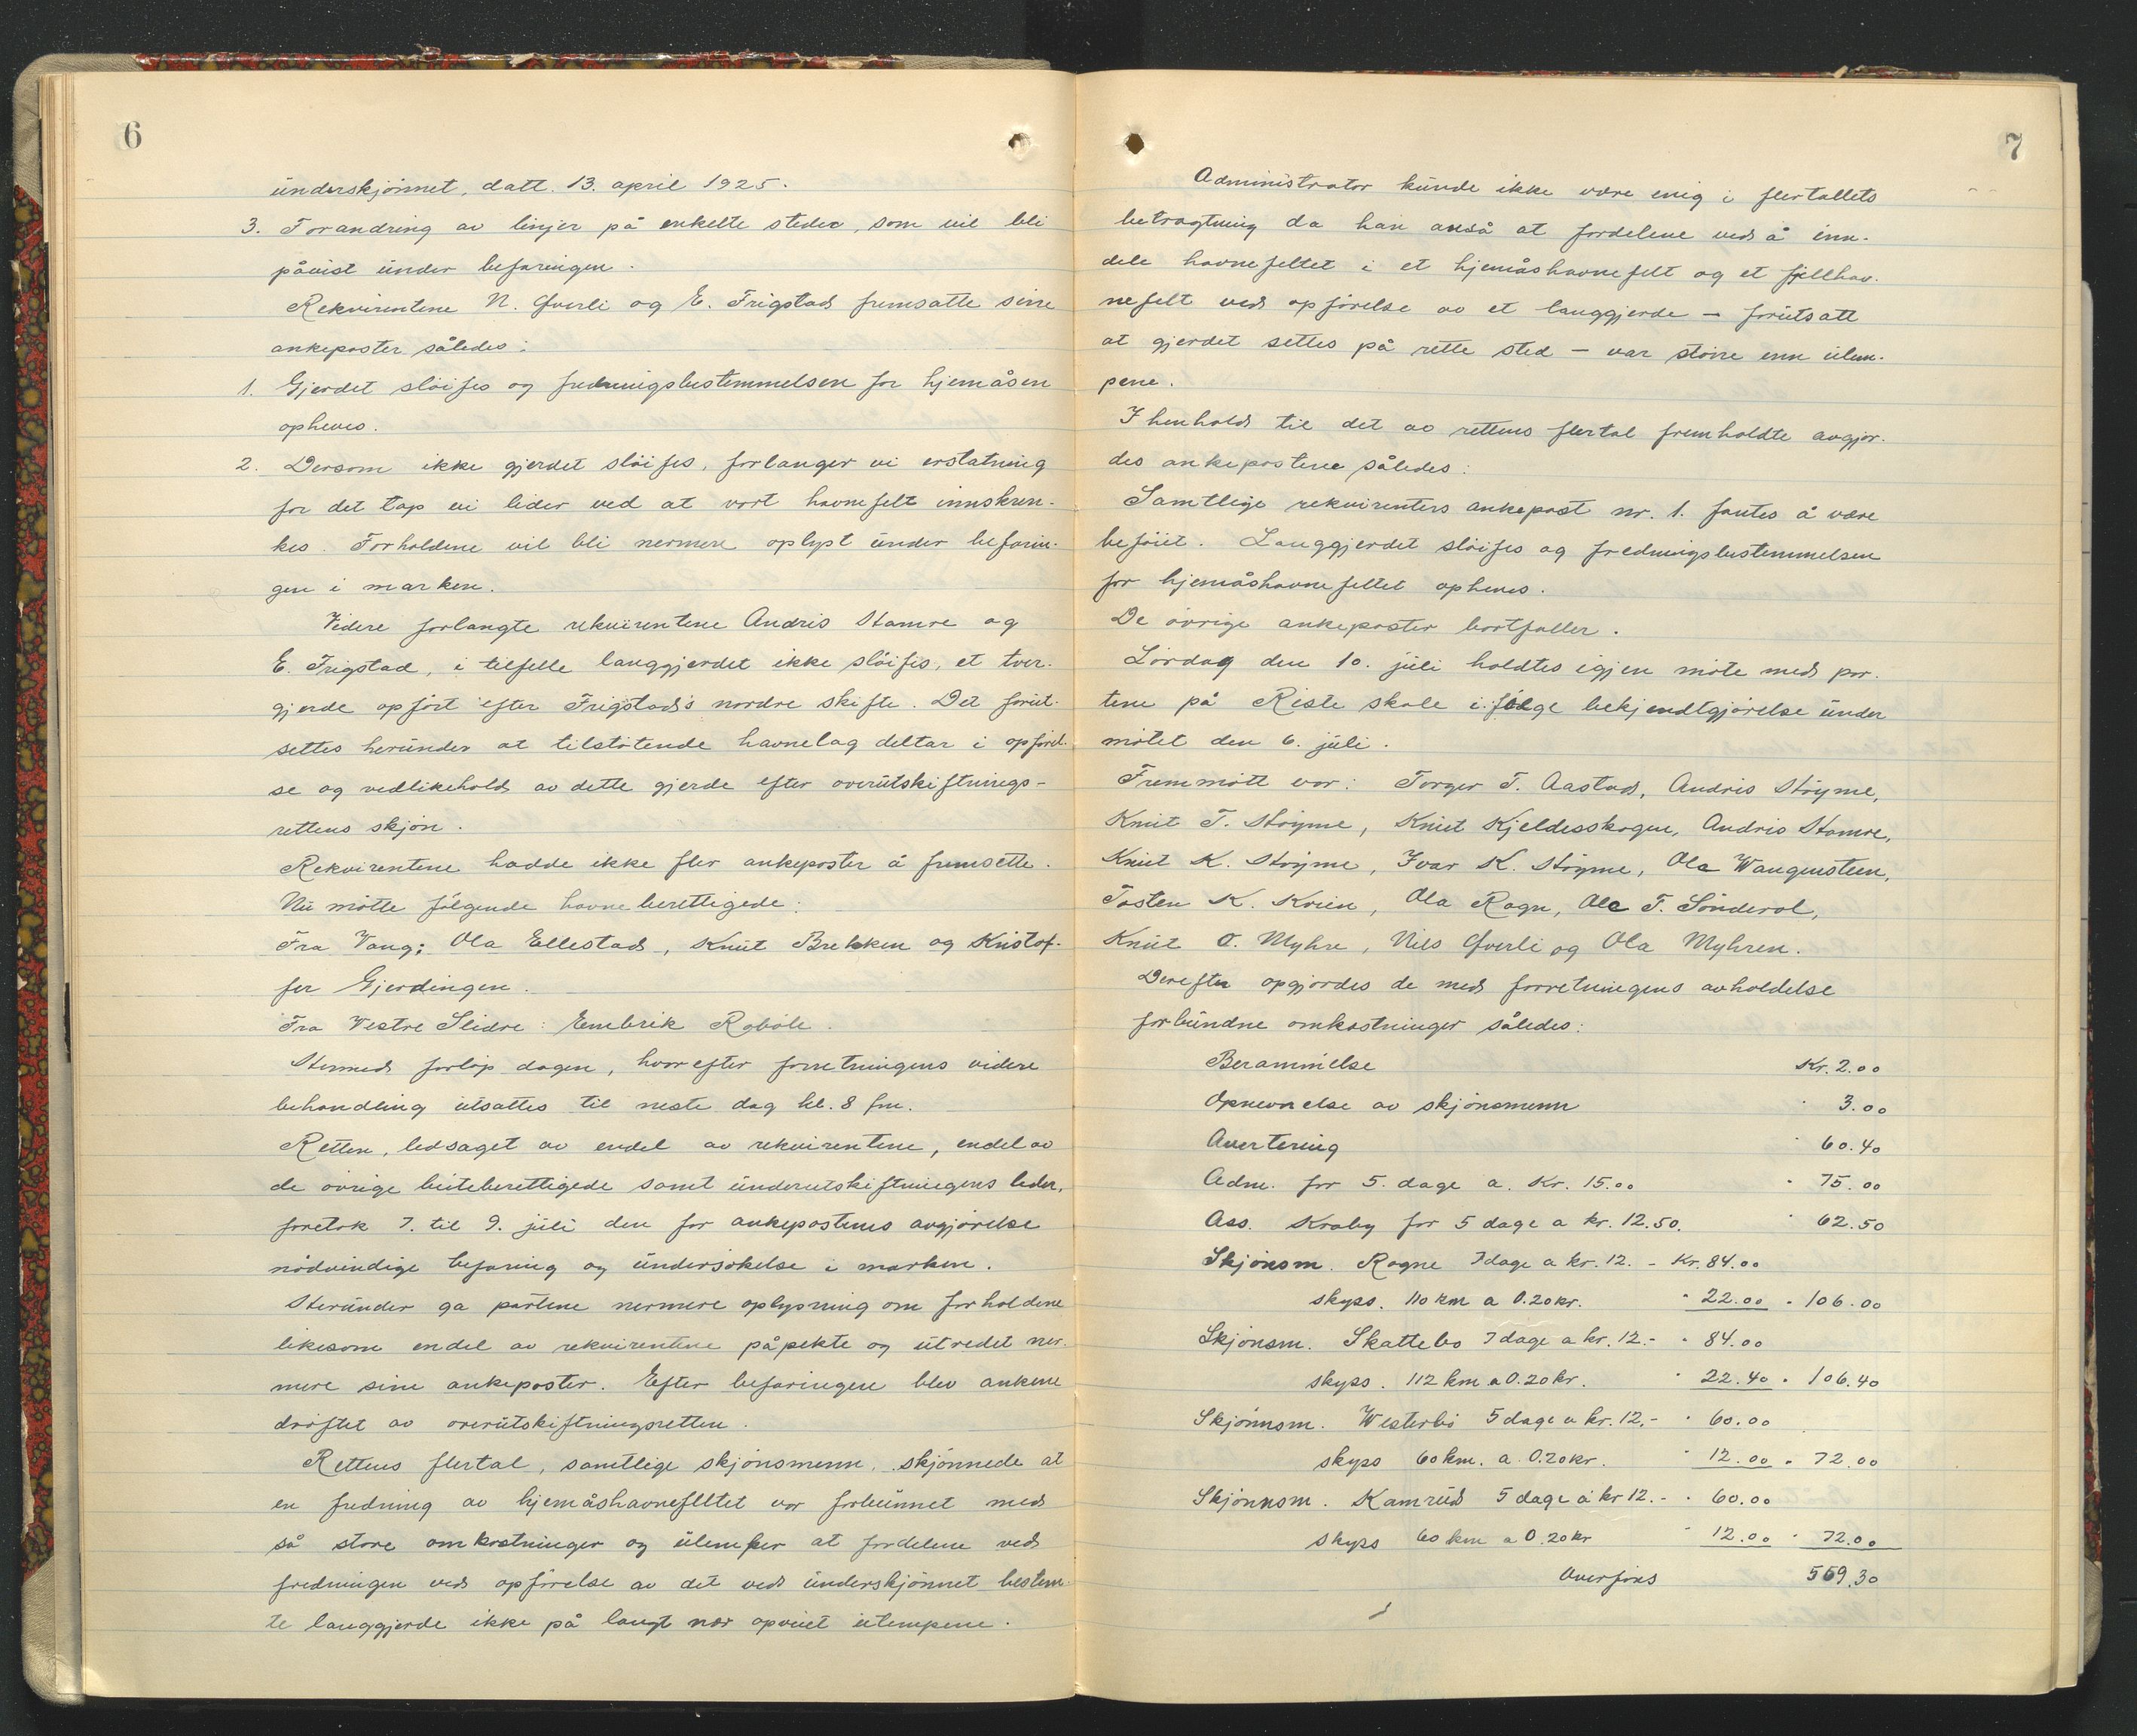 6
underskjönnet, datt. 13. april 1925.
3. Forandring av linjer på enkelte steder, som vil bli
påvist under befaringen.
Rekvirentene N. Qverli og E. Frigstad fremsatte sine
ankeposter således:
1. Gjerdet slöifes og fredningsbestemmelsen for hjemåsen
opheves.
2. Dersom ikke gjerdet slöifes, forlanger vi erstatning
for det tap vi lider ved at vort havnefelt innskren-
kes. Forholdene vil bli nermere oplyst under befarin-
gen i marken.
Videre forlangte rekvirentene Andris Hamre og
E. Frigstad, i tilfelle langgjerdet ikke slöifes, et tver-
gjerde opfört efter Frigstad's nordre skifte. Det forut-
settes herunder at tilstötende havnelag deltar i opförel-
se og vedlikehold av dette gjerde efter overutskiftnings-
rettens skjön.
Rekvirentene hadde ikke fler ankeposter å fremsette.
Nu mötte fölgende havneberettigede:
Fra Vang: Ola Ellestad, Knut Brekken og Kristof-
fer Gjerdingen.
Fra Vestre Slidre: Embrik Roböle.
Hermed forlöp dagen, hvorefter forretningens videre
behandling utsattes til neste dag kl. 8 fm.
Retten, ledsaget av endel av rekvirentene, endel av
de övrige beiteberettigede samt underutskiftningens leder,
foretok 7. til 9. juli den for ankepostenes avgjörelse
nödvendige befaring og undersökelse i marken.
Herunder ga partene nermere oplysning om forholdene
likesom endel av rekvirentene påpekte og utredet ner-
mere sine ankeposter. Efter befaringen blev ankene
dröftet av overutskiftningsretten.
Rettens flertal, samtlige skjönsmenn, skjönnede at
en fredning av hjemåshavnefeltet var forbunnet med
så store omkostninger og ulemper at fordelene ved
fredningen ved opförelse av det ved underskjönnet bestem-
te langgjerde ikke på langt nær opveiet ulempene.
7
Administrator kunde ikke være enig i flertallets
betragtning da han anså at fordelene ved å inn-
dele havnefeltet i et hjemåshavnefelt og et fjellhav-
nefelt ved opförelse av et langgjerde – forutsatt
at gjerdet settes på rette sted – var större enn ulem-
pene.
I henhold til det av rettens flertal fremholdte avgjör-
des ankepostene således:
Samtlige rekvirenters ankepost nr. 1. fantes å være
beföiet. Langgjerdet slöifes og fredningsbestemmelsen
for hjemåshavnefeltet opheves.
De övrige ankeposter bortfaller.
Lördag den 10. juli holdtes igjen möte med par-
tene på Riste skole ifölge bekjendtgjörelse under
mötet den 6. juli.
Fremmött var: Torger T. Aastad, Andris Höyme,
Knut T. Höyme, Knut Kjeldesskogen, Andris Hamre,
Knut K. Höyme, Ivar K. Höyme, Ola Wangensteen,
Tosten K. Kvien, Ola Rogn, Ole T. Sönderol,
Knut O. Myhre, Nils Qverli og Ola Myhren.
Derefter opgjordes de med forretningens avholdelse
forbundne omkostninger således:
Berammelse Kr. 2.00
Opnevnelse av skjönsmenn " 3.00
Avertering " 60.40
Adm. for 5. dage a. Kr. 15.00 " 75.00
Ass. Kraby for 5 dage a kr. 12.50. " 62.50
Skjönsm. Rogne 7 dage a kr. 12. - Kr. 84.00
skyss. 110 km a 0.20 kr. " 22.00 " 106.00
Skjönsm. Skattebo 7 dage a kr. 12.- " 84.00
skyss. 112 km a 0.20 kr. " 22.40 " 106.40
Skjönnsm. Westerbö 5 dage a kr. 12.- " 60.00
skyss 60 km. a 0.20 kr. " 12.00 " 72.00
Skjönnsm. Kamrud 5 dage á kr 12.- " 60.00
skyss 60 km a 0.20 kr " 12.00 " 72.00
Overföres 559.30